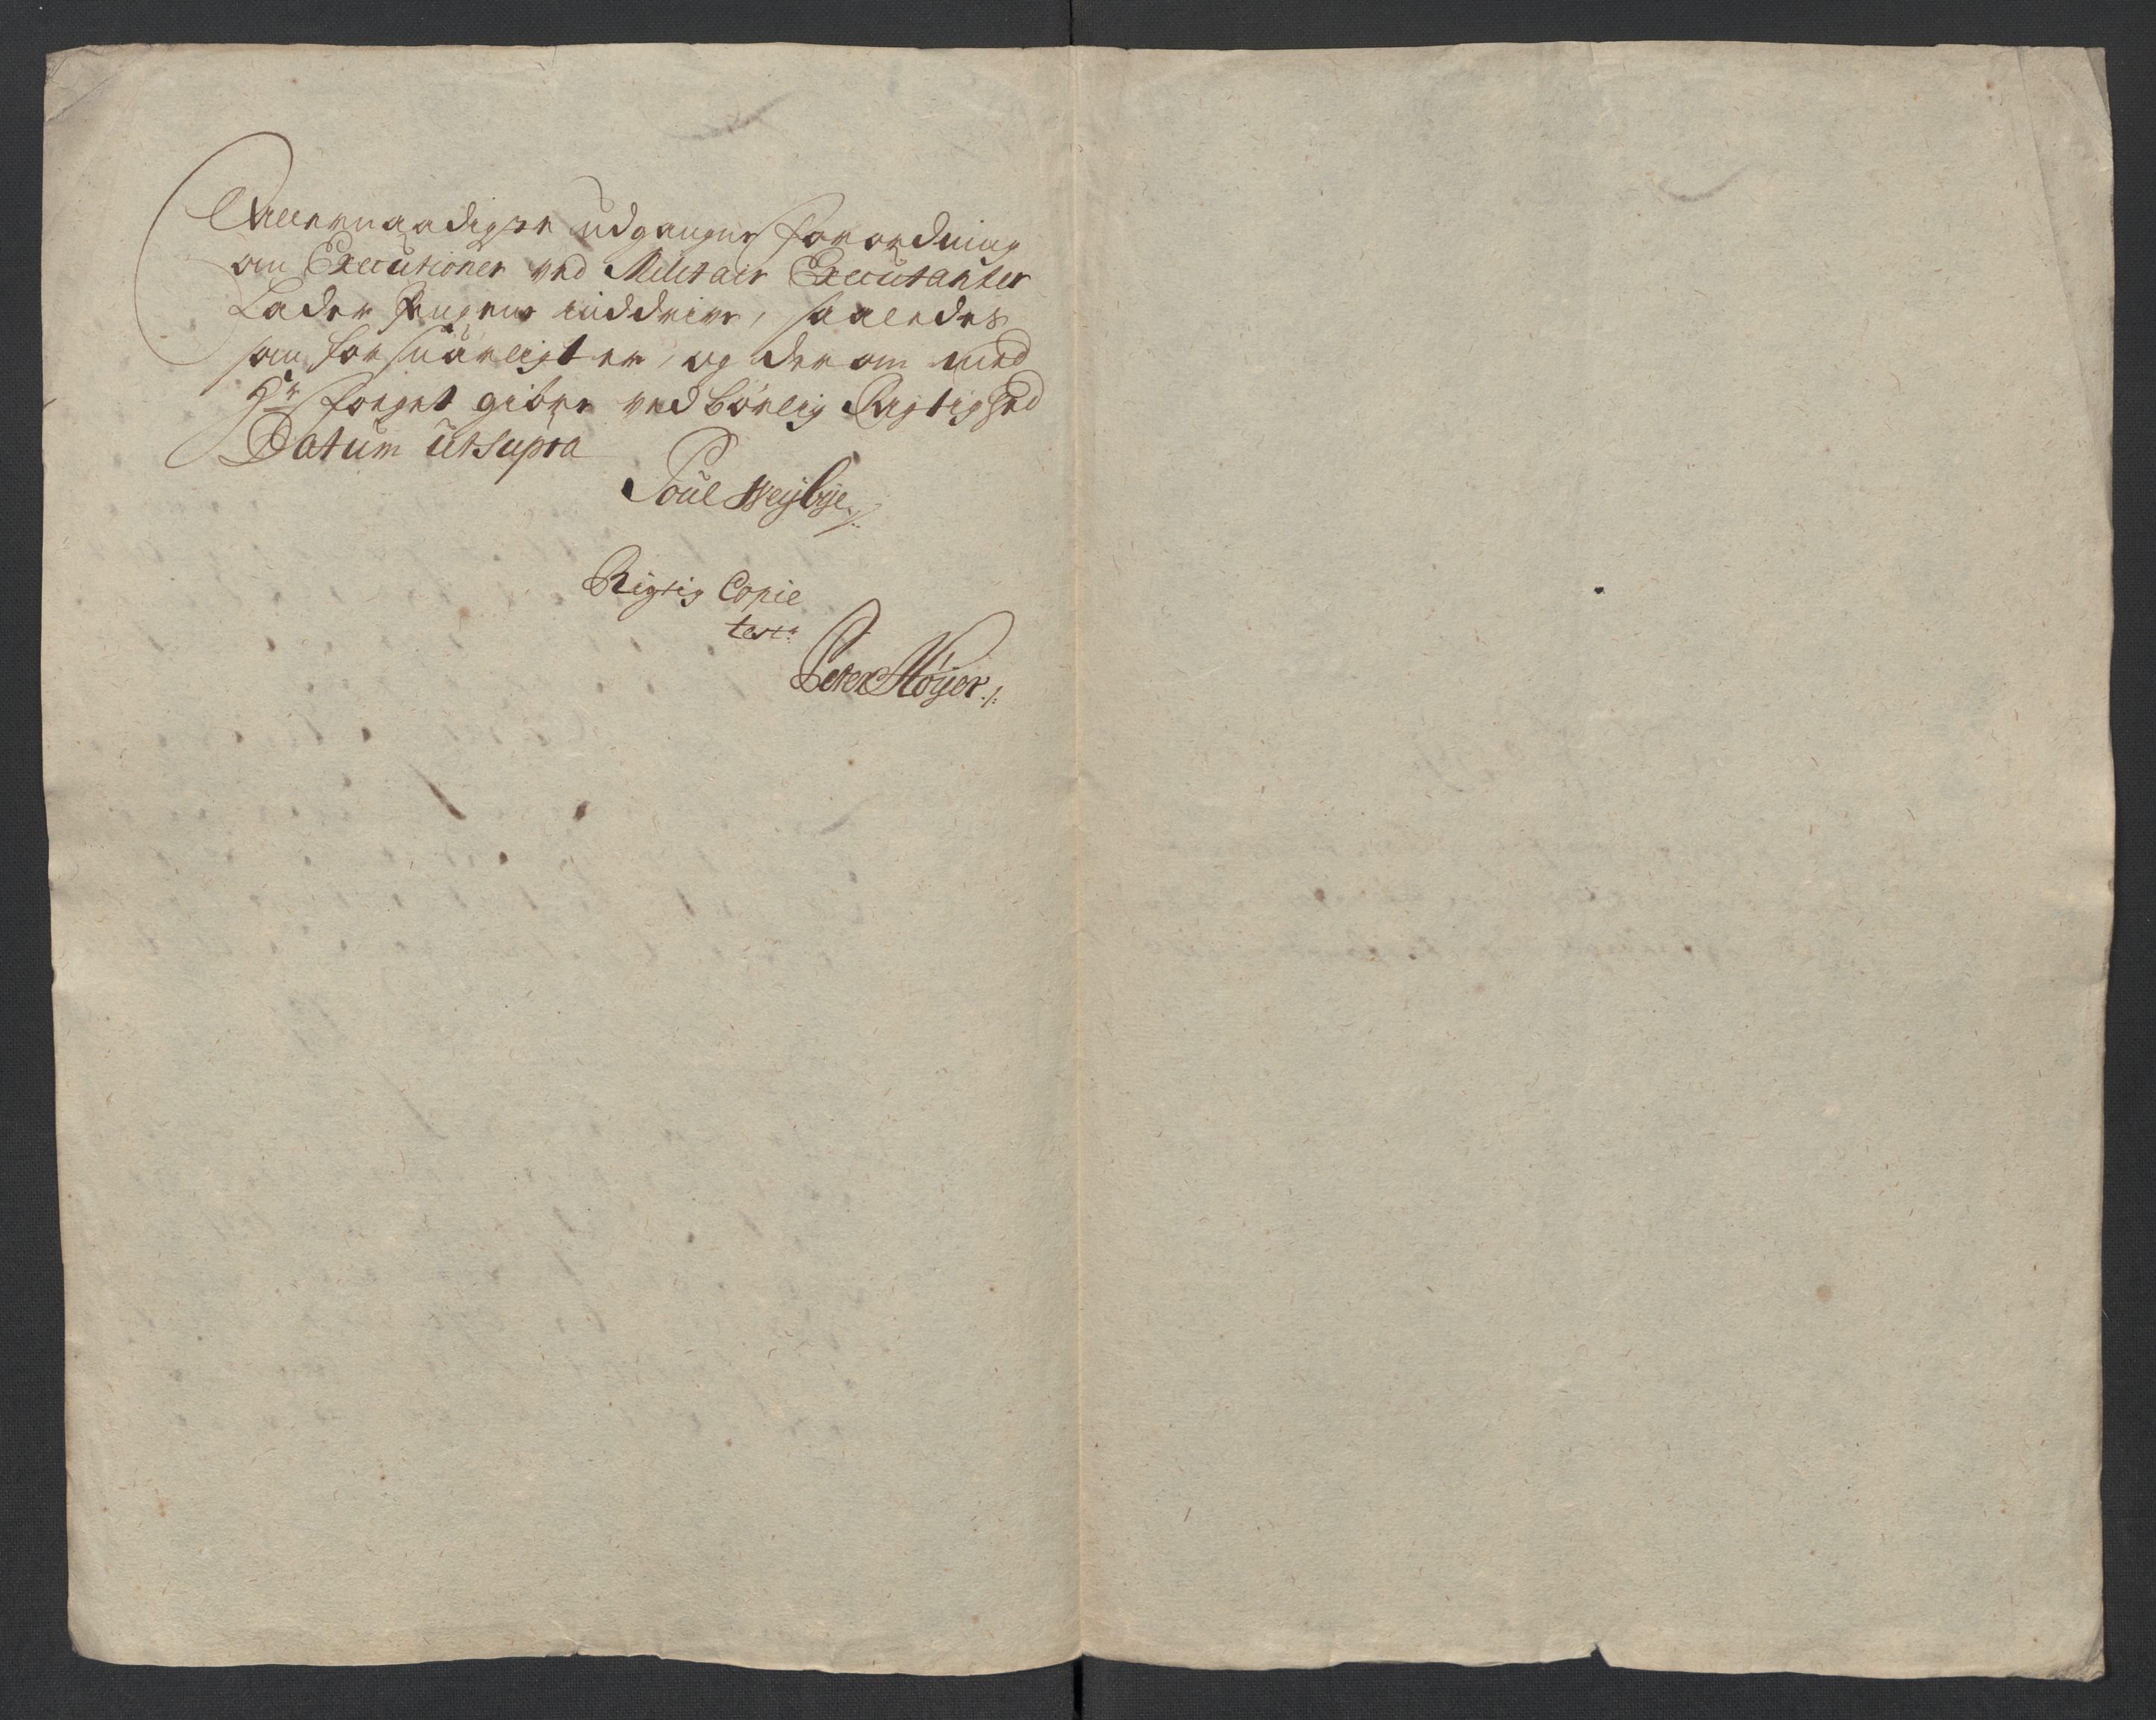 Allernaadigste udgangne forordning
om Executioner ved Militair Executanter
Lader pengene inddrive, saaledes
som forsuarligt er, og der om med
Hr foeget giöre ved börlig Rigtighed
Datum ut supra
Poul Weÿbÿe ./.
Rigtig Copie
test:
Peter Höÿer ./.